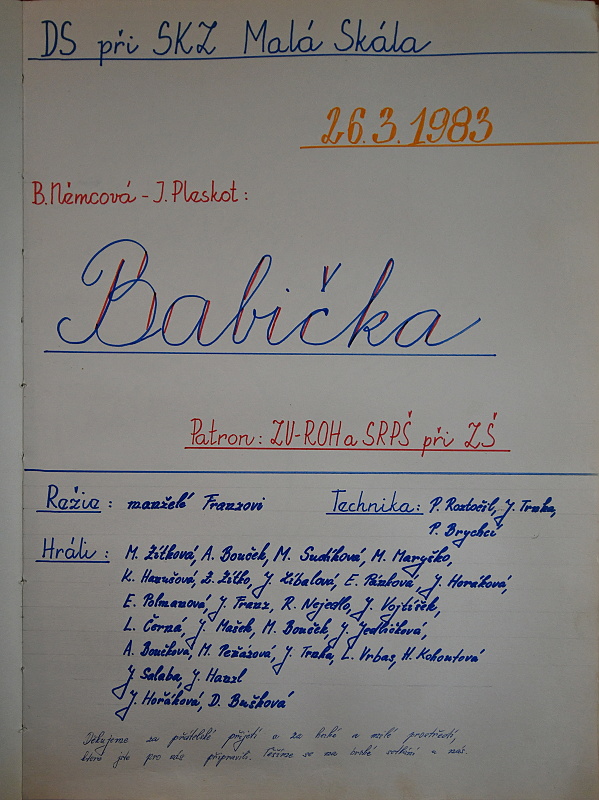 DS při SKZ Malá Skála
26.3.1983
B. Němcová - J. Pleskot:
Babička
Patron: ZV-ROH a SRPŠ při ZŠ
Režie: manželé Franzovi
Technika: P. Roztočil, J. Trnka,
P. Brychcí
Hráli: M. Žitková, A. Bouček, M. Sudíková, M. Maryško,
K. Hanušová, Z. Žitko, J. Libalová, E. Pánková, J. Horáková,
E. Polmanová, J. Franz, R. Nejedlo, J. Vojtíšek,
L. Černá, J. Mašek, M. Bouček, J. Jedličková,
A. Boučková, M. Peňázová, J. Trnka, L. Vrbas, H. Kohoutová
J. Salaba, J. Hanzl
J. Hořáková, D. Bušková
Děkujeme za přátelské přijetí a za hezké a milé prostředí,
které jste pro nás připravili. Těšíme se na brzké setkání u nás.